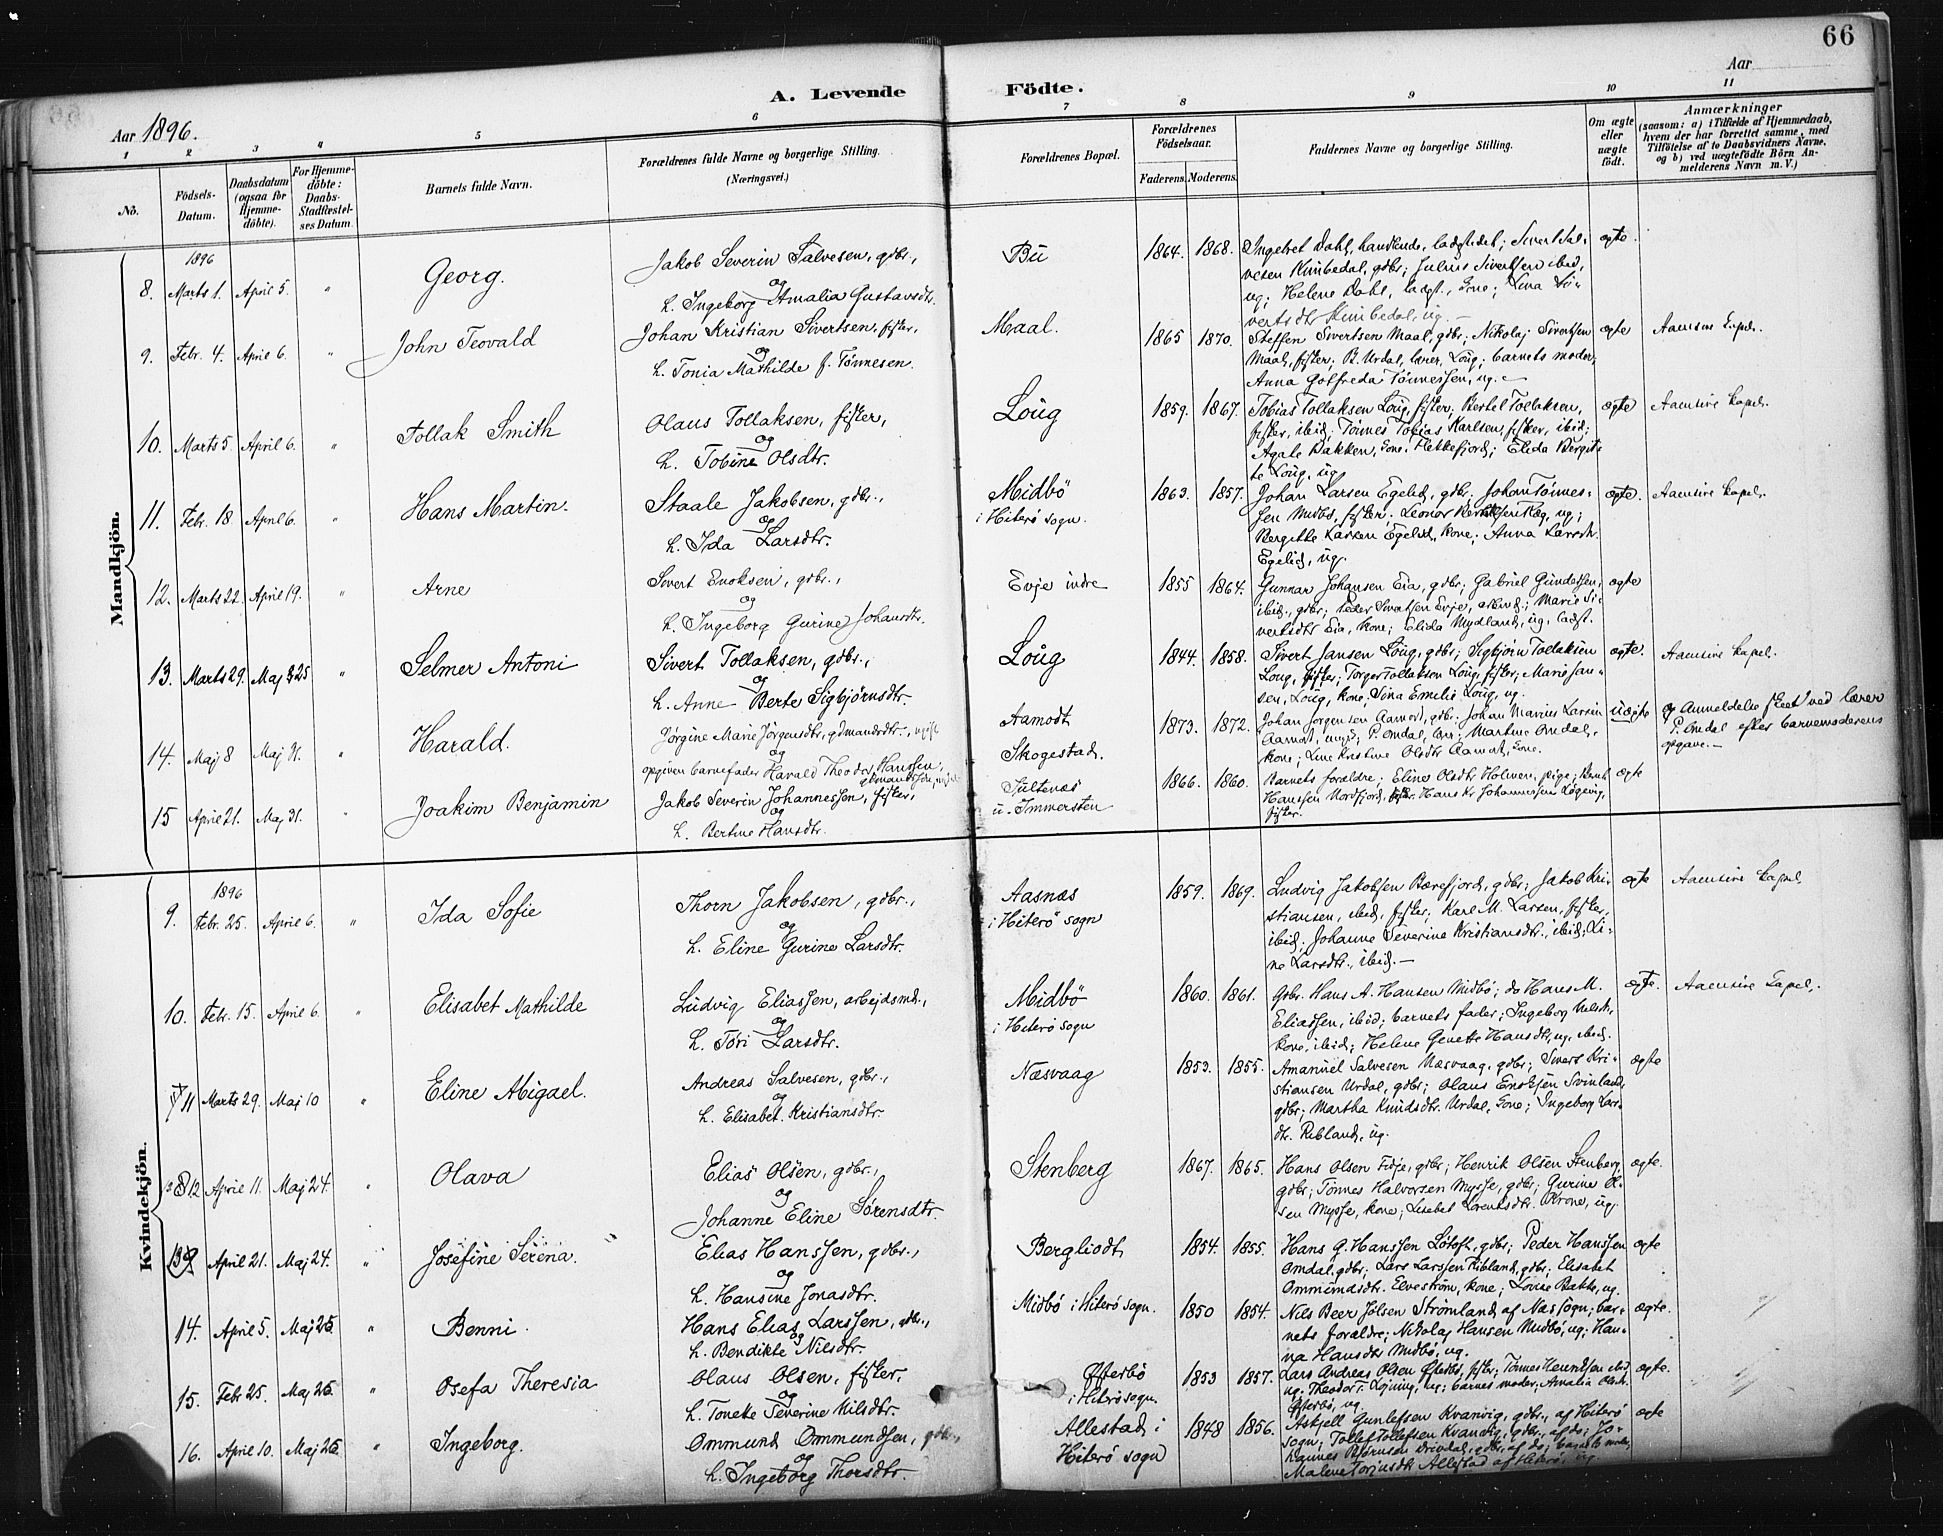 66
A. Levende Födte.
Aar 1896.
Aar
1 2 3 4 5 6 7 8 9 10 11
No.
Födsels-Datum.
Daabsdatum (ogsaa for Hjemmedöbte).
For Hjemmedöbte: Daabs-Stadfæstelses Datum.
Barnets fulde Navn.
Forældrenes fulde Navne og borgerlige Stilling. (Næringsvei.)
Forældrenes Bopæl.
Forældrenes Födselsaar.
Faderens. Moderens.
Faddernes Navne og borgerlige Stilling.
Om ægte eller uægte födt.
Anmærkninger
(saasom: a) i Tilfælde af Hjemmedaab, hvem der har forrettet samme, med Tilföielse af to Daabsvidners Navne, og b) ved uægtefödte Börn Anmelderens Navn m. V.)
Mandkjön.
1896
8. Marts 1. April 5. " Georg.
Jakob Severin Salvesen, gdbr.,
og
h. Ingeborg Amalia Gustavsdtr.
Bu 1864. 1868.
Ingebret Dahl, handlende, ladested; Sivert Sal-
vesen Kumbedal, gdbr; Julius Sivertsen ibid,
ug; Helene Dahl, ladest., kone; Lina Si-
vertsdtr Kumbedal, ug. —
ægte.
9. Febr. 4. April 6. " John Teovald
Johan Kristian Sivertsen, fisker,
og
h. Tonia Mathilde f. Tönnesen.
Maal. 1865 1870.
Steffen Sivertsen Maal, gdbr; Nikolaj Sivertsen
Maal, fisker; B. Urdal, lærer, Loug; barnets moder;
Anna Golfreda Tönnessen, ug. —
ægte Aaensire kapel.
10. Marts 5. April 6. " Tollak Smith
Olaus Tollaksen, fisker,
og
h. Tobine Olsdtr.
Loug 1859. 1867.
Tobias Tollaksen Loug, fisker; Bertel Tollaksen,
fisker, ibid; Tönnes Tobias Karlsen, fisker, ibid;
Agate Bakken, kone, Flekkefjord; Elida Bergit-
te Loug, ug.
ægte Aaensire kapel.
11. Febr. 18. April 6. " Hans Martin.
Staale Jakobsen, gdbr.,
og
h. Ida Larsdtr.
Midbö
i Hiterö sogn.
1863. 1857.
Johan Larsen Egelid, gdbr; Johan Tönnes-
sen Midbö, fisker;
Bergitte Larsen Egelid, kone; Anna Larsdtr.
Egelid, ug.
ægte. Aaensire kapel.
12. Marts 22. April 19. " Arne
Sivert Enoksen, gdbr.,
og
h. Ingeborg Gurine Johansdtr.
Evje indre 1855 1864.
Gunnar Johansen Eia, gdbr; Gabriel Gundersen,
ibid., gdbr; Peder Sivertsen Evje, arbmd.; Marie Si-
vertsdtr Eia, kone; Elida Mydland, ug, ladst.
ægte
13. Marts 29. Maj 25 " Selmer Antoni
Sivert Tollaksen, gdbr.,
og
h. Anne Berte Sigbjörnsdtr.
Loug 1844. 1858.
Sivert Jansen Loug, gdbr; Sigbjörn Tollaksen
Loug, fisker; Torger Tollaksen Loug, fisker; Marie Jan-
sen, Loug, kone; Sina Emelie Loug, ug.
ægte. Aaensire kapel.
14. Maj 8 Maj 31. " Harald.
Jörgine Marie Jörgensdtr, gdmandsdtr., ugift
og
opgiven barnefader Harald Theodor Hanssen,
gdmandssön, ugift
Aamodt
Skogestad.
1873. 1872.
Johan Jörgensen Aamodt, gdbr; Johan Marius Larsen
Aamodt, ungk, P. Omdal, lær; Martine Omdal,
kone; Line Kristine Olsdtr Aamodt, kone.
uægte
Anmeldelse skeet ved lærer
P. Omdal efter barnemoderens
opgave. —
15 April 21. Maj 31. " Joakim Benjamin
Jakob Severin Johannessen, fisker,
og
h. Bertine Hansdtr.
Sültenæs
u. Immersten
1866. 1860.
Barnets forældre; Eline Olsdtr Holmen, pige; Bernt
Hanssen Nordfjord, fisker. Hans Kr Johannesen Lögevig,
fisker.
ægte
Kvindekjön.
1896
9. Febr. 25. April 6. " Ida Sofie
Thorn Jakobsen, gdbr.,
og
h. Eline Gurine Larsdtr.
Aasnæs
i Hiterö sogn
1859. 1869.
Ludvig Jakobsen Bærefjord, gdbr; Jakob Kri-
stiansen, ibid, fisker; Karl M. Larsen, fisker,
ibid; Johanne Severine Kristiansdtr., ibid; Li-
ne Larsdtr., ibid. —
ægte Aaensire kapel.
10. Febr. 15. April 6. " Elisabet Mathilde
Ludvig Eliassen, arbejdsmd.,
og
h. Tori Larsdtr.
Midbö
i Hiterö sogn
1860. 1861.
Gdbr. Hans A. Hansen Midbö; do Hans M.
Eliassen, ibid; barnets fader; Ingeborg Nilsdtr,
kone, ibid; Helene Genette Hansdtr, ug. ibid.
ægte. Aaensire kapel.
11 Marts 29. Maj 10 " Eline Abigael.
Andreas Salvesen, gdbr.,
og
h. Elisabet Kristiansdtr.
Næsvaag 1853. 1855.
Amanuel Salvesen Næsvaag, gdbr; Sivert Kri-
stiansen Urdal, gdbr; Olaus Enoksen Svinland,
gdbr; Martha Knudsdtr. Urdal, kone; Ingeborg Lars-
dtr. Ribland, ug.
ægte
12 April 11. Maj 24. " Olava
Elias Olsen, gdbr.,
og
Johanne Eline Sörensdtr.
Stenberg 1867. 1865.
Hans Olsen Fidje, gdbr; Henrik Olsen Stenberg
gdbr; Tönnes Halvorsen Mysse, gdbr; Gurine Ol-
sen Mysse, kone; Lisebet Lorentsdtr. Krone, ug.
ægte.
13 April 21. Maj 24. " Josefine Serena.
Elias Hanssen, gdbr.,
og
h. Hansine Jonasdtr.
Bergliodt 1854. 1855.
Hans G. Hanssen Lötoft, gdbr; Peder Hanssen
Omdal, gdbr; Lars Larssen Ribland, gdbr; Elisabet
Ommundsdtr. Elveström, kone; Lovise Bakke, ug.
ægte
14. April 5. Maj 25. " Benni.
Hans Elias Larssen, gdbr.,
og
h. Bendikte Nilsdtr.
Midbö i Hiterö sogn. 1850 1854.
Nils Beer Jölsen Strömland af Næs sogn; bar-
nets forældre; Nikolaj Hansen Midbö, ug; Han-
na Hansdtr Midbö, ug.
ægte.
15. Febr 25. Maj 25. " Osefa Theresia
Olaus Olsen, fisker,
og
h. Tonette Severine Nilsdtr.
Öfterbö
i Hiterö sogn.
1853 1857.
Lars Andreas Olsen Öfterbö, fisker; Tönnes Henriksen ibid
ug; Theodor T. Löjning, ug; barnets moder; Amalia Olsdtr.
Öfterbö, ug.
ægte.
16. April 10. Maj 25. " Ingeborg.
Ommund Ommundsen, gdbr.,
og
h. Ingeborg Thorsdtr.
Allestad i
Hiterö sogn
1848 1856.
Askjell Gunlefsen Kvanvig, gdbr., af Hiterö
sogn; Tollef Tollefsen Kvanvig, gdbr., af do; Jo-
hannes Björnsen Drivdal, gdbr. af do; barnets moder,
Malene Torjusdtr Allestad af Hiterö, ug.
ægte